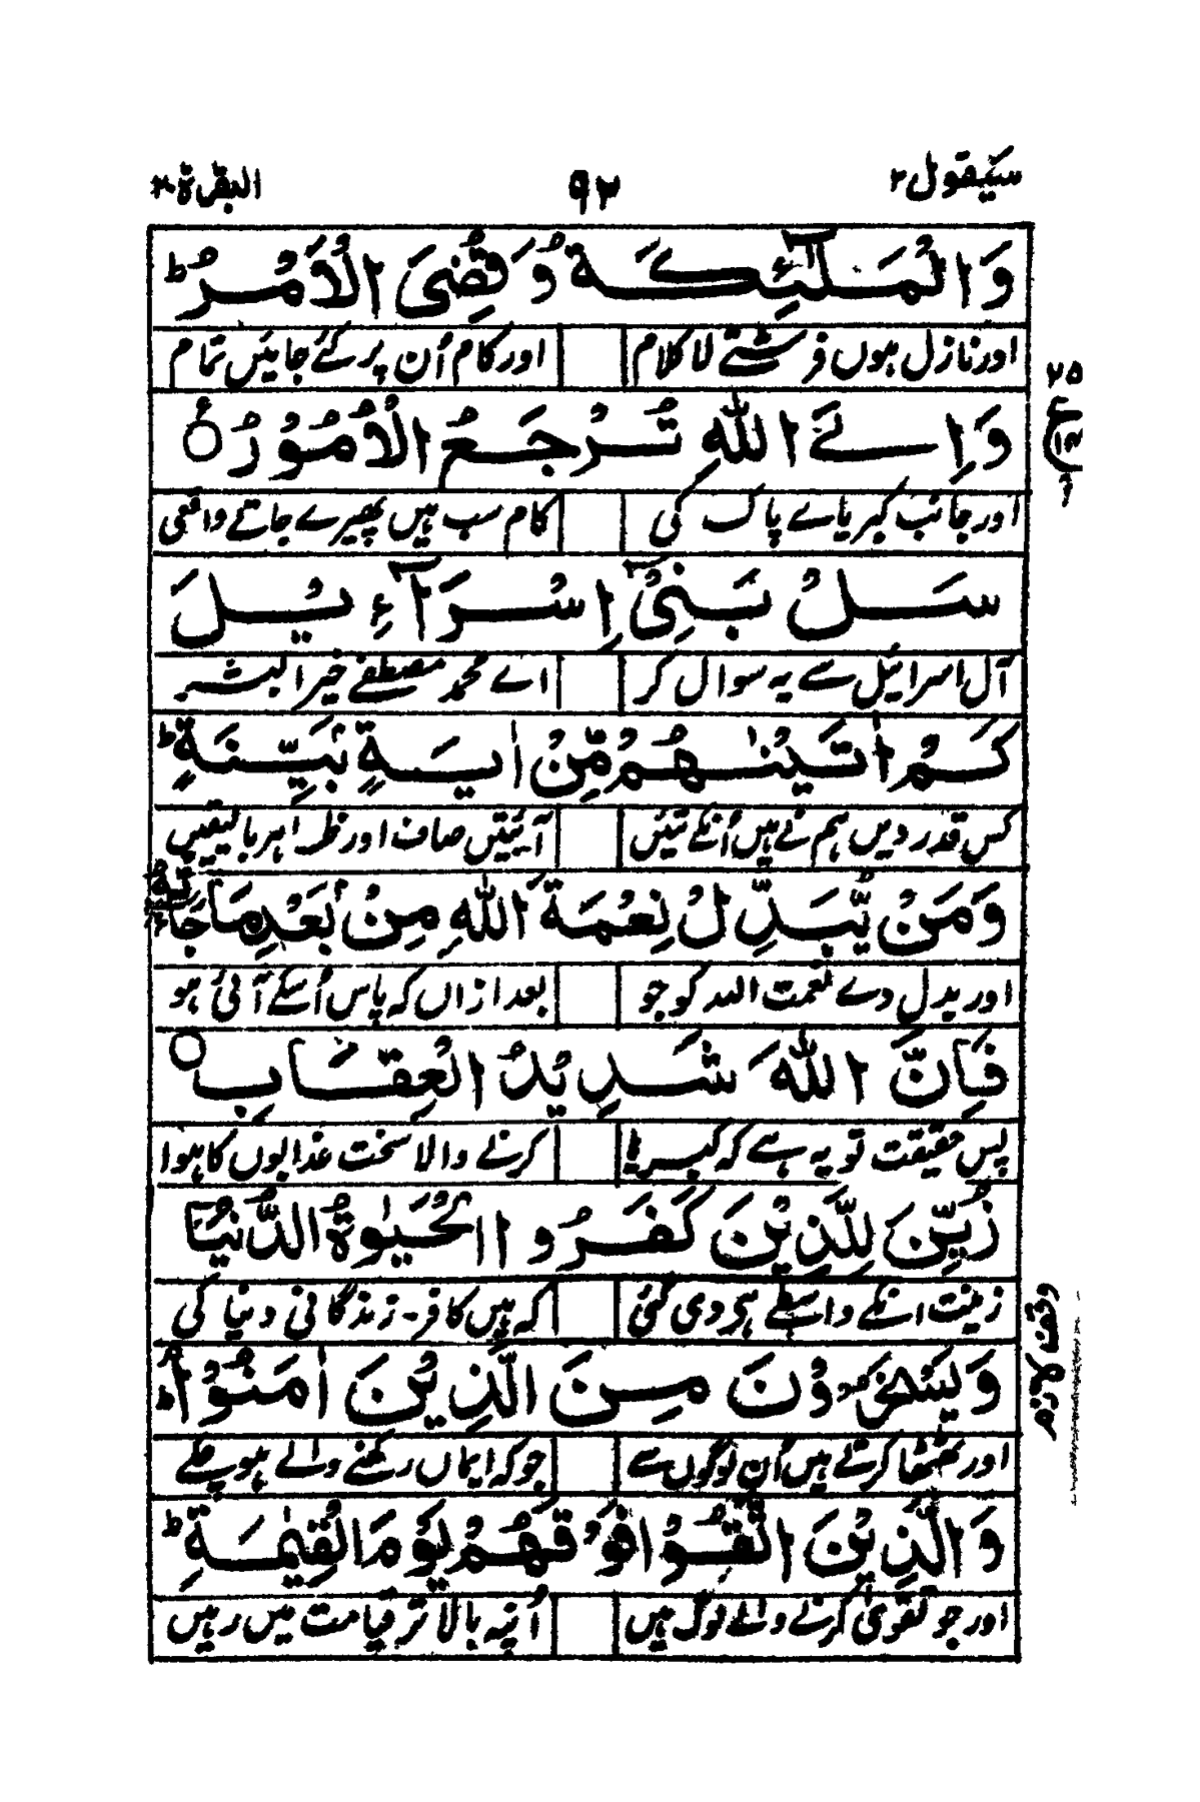 سیقول ۲ ۹۲ البقرۃ ۲
وَالْمَلٰٓئِكَةُ وَقُضِیَ الْاَمْرُ ؕ
اور نازل ہوں فرشتے لا کلام اور کام اُن پر کئے جائیں تمام
وَاِلَی اللّٰهِ تُرْجَعُ الْاُمُوْرُ ۠
اور جانب کبریائے پاک کی کام سب ہیں پھیرے جاتے واقعی
۲۵
ع
سَلْ بَنِیْۤ اِسْرَآءِیْلَ
آل اسرائیل سے یہ سوال کر اے محمد مصطفےٰ خیر البشر
كَمْ اٰتَیْنٰهُمْ مِّنْ اٰیَةٍۭ بَیِّنَةٍ ؕ
کس قدر دیں ہم نے ہیں اُنکے تئیں آیتیں صاف اور ظاہر بالیقیں
وَمَنْ یُّبَدِّلْ نِعْمَةَ اللّٰهِ مِنْۢ بَعْدِ مَا جَآءَتْهُ
اور بدل دے نعمت اللہ کو جو بعد ازاں کہ پاس اُسکے آئی ہو
فَاِنَّ اللّٰهَ شَدِیْدُ الْعِقَابِ ۝
پس حقیقت تو یہ ہے کہ کبریا کرنے والا سخت عذابوں کا ہوا
زُیِّنَ لِلَّذِیْنَ كَفَرُوا الْحَیٰوةُ الدُّنْیَا
زینت انکے واسطے ہے دی گئی کہ ہیں کافر۔ زندگانی دنیا کی
وَیَسْخَرُوْنَ مِنَ الَّذِیْنَ اٰمَنُوْا ۘ
وقف لازم
اور ٹھٹھا کرتے ہیں اُن لوگوں سے جو کہ ایماں رکھنے والے ہو چکے
وَالَّذِیْنَ اتَّقَوْا فَوْقَهُمْ یَوْمَ الْقِیٰمَةِ ؕ
اور جو تقویٰ کرنے والے لوگ ہیں اُنپہ بالاتر قیامت میں رہیں